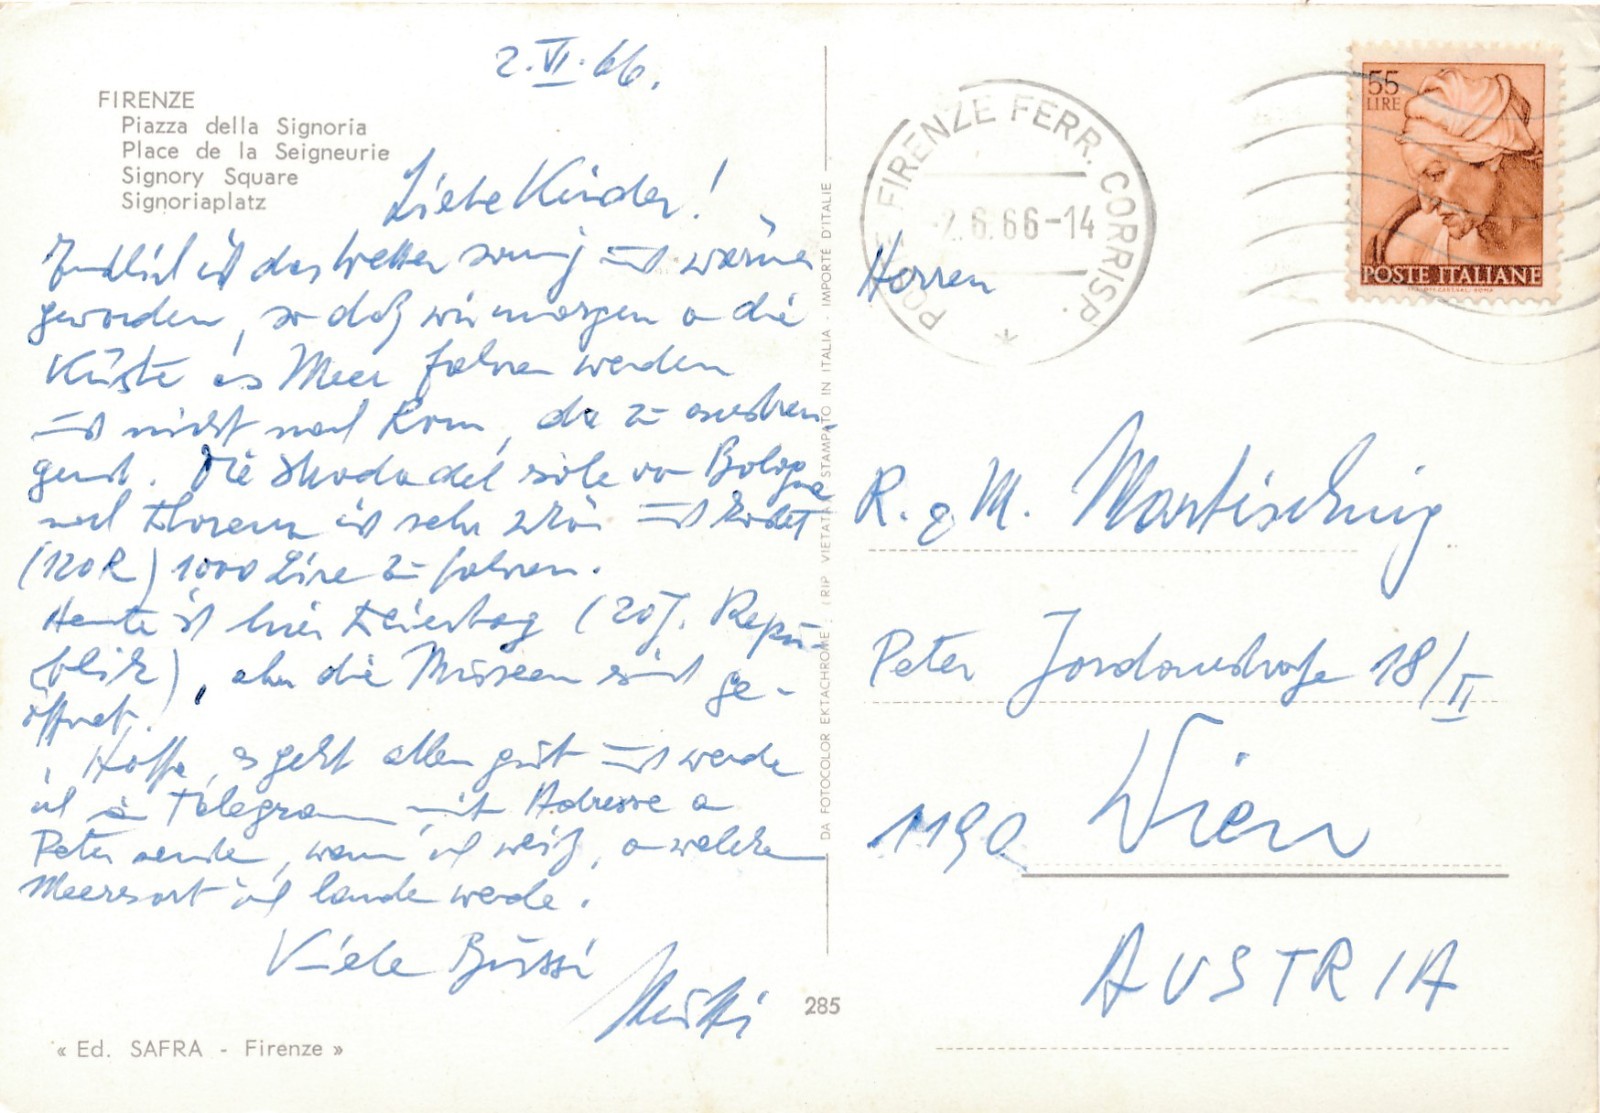 2.VI.66.
FIRENZE
Piazza della Signoria
Place de la Seigneurie
Signory Square
Signoriaplatz
Liebe Kinder!
Endlich ist das Wetter sonnig und wärmer
geworden, so daß wir morgen an die
Küste ans Meer fahren werden
und nicht nach Rom, da zu anstren
gend. Die Strada del sole von Bologna
nach Florenz ist sehr schön und kostet
(120 R) 1000 Lire zu fahren.
Heute ist hier Feiertag (20 J. Repu-
blik), aber die Museen sind ge-
öffnet.
Hoffe, es geht allen gut und werde
ich ein Telegramm mit Adresse an
Peter senden, wenn ich weiß, an welchem
Meeresort ich landen werde.
Viele Bussi
Mutti
« Ed. SAFRA - Firenze »
285
DA FOTOCOLOR EKTACHROME · RIP. VIETATA · STAMPATO IN ITALIA · IMPORTE D'ITALIE
POSTE FIRENZE FERR. CORRISP.
-2.6.66-14
55
LIRE
POSTE ITALIANE
Herren
R. & M. Martischnig
Peter Jordanstraße 18/II
1190 Wien
AUSTRIA